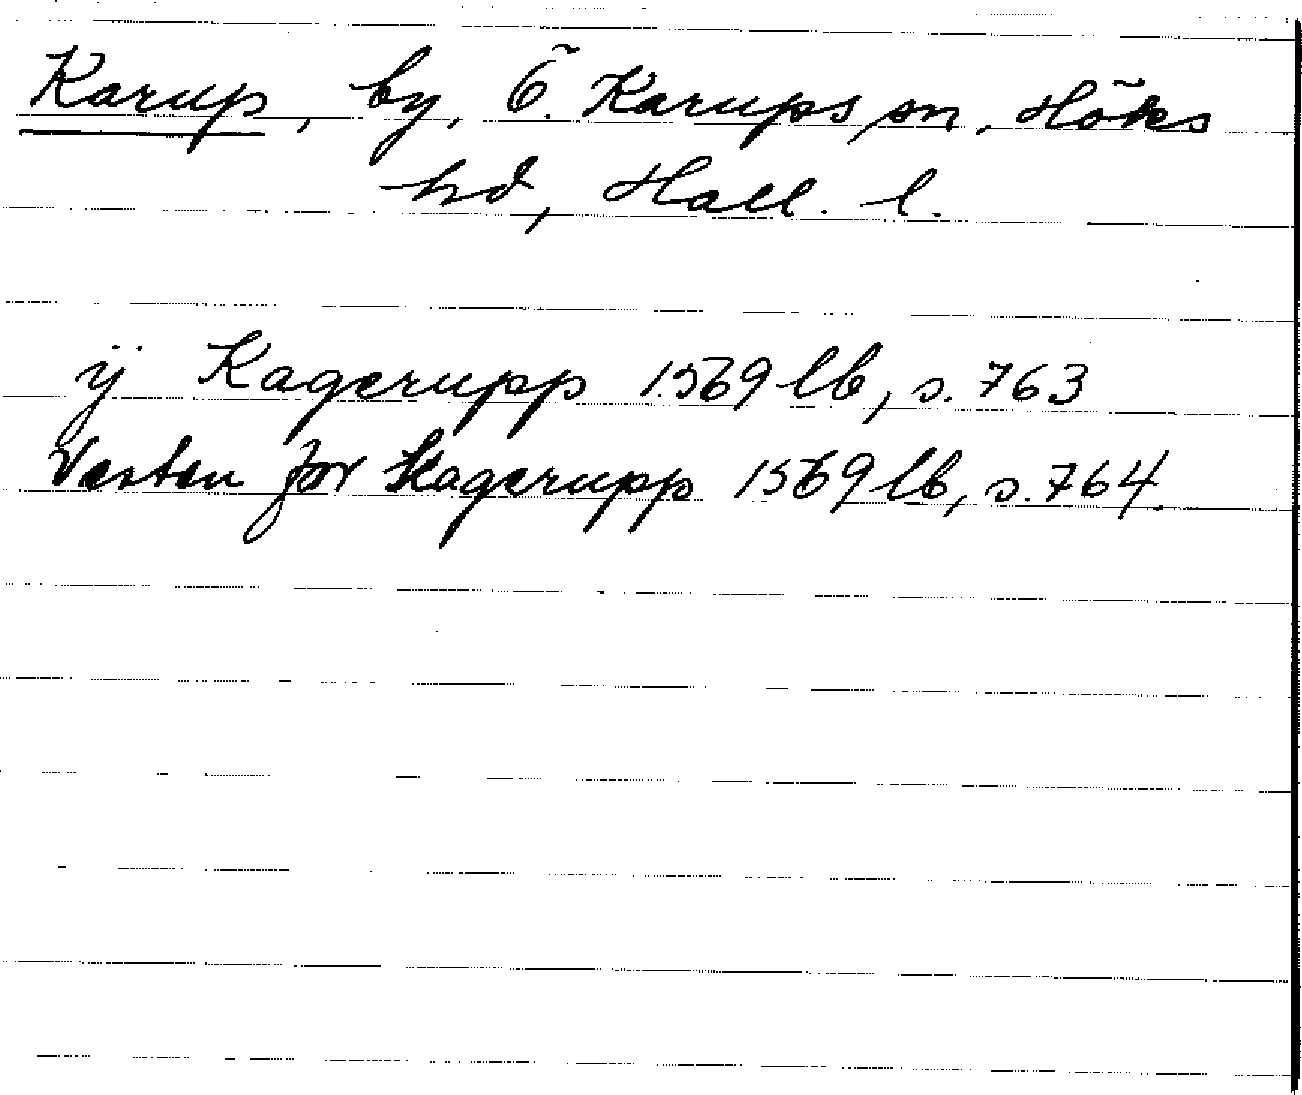 Karup, by, Ö. Karups sn, Höks
hd, Hall. l.
ÿ Kagerupp 1569 lb, s. 763
Vesten for Kagerupp 1569 lb, s. 764.